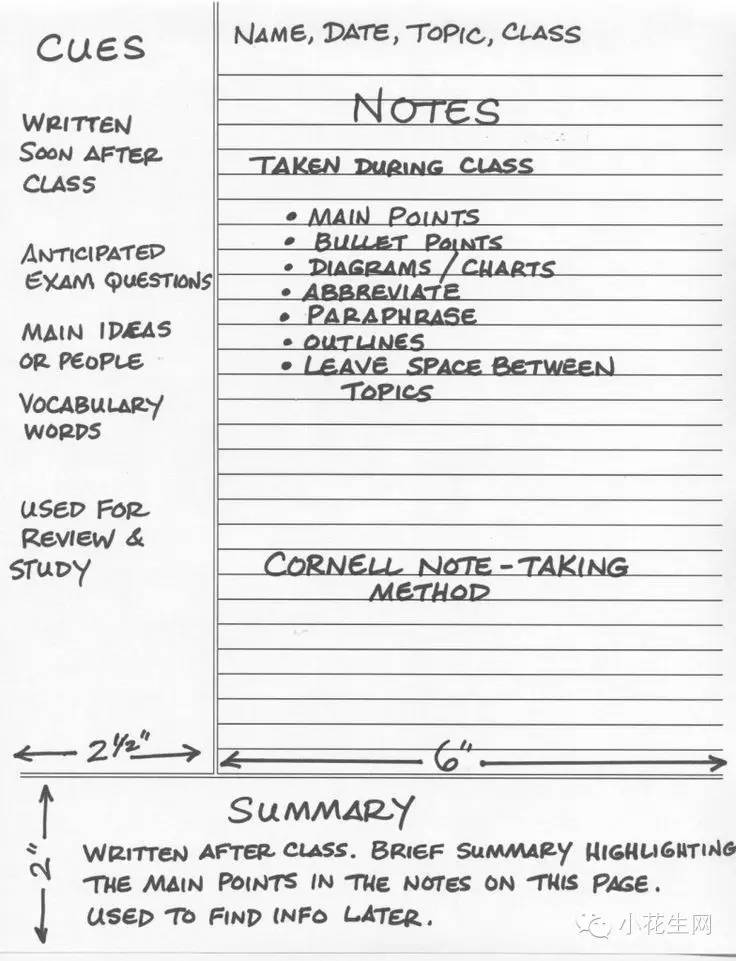 CUES
WRITTEN
SOON AFTER
CLASS
ANTICIPATED
EXAM QUESTIONS
MAIN IDEAS
OR PEOPLE
VOCABULARY
WORDS
USED FOR
REVIEW &
STUDY
2 1/2"
NAME, DATE, TOPIC, CLASS
NOTES
TAKEN DURING CLASS
• MAIN POINTS
• BULLET POINTS
• DIAGRAMS / CHARTS
• ABBREVIATE
• PARAPHRASE
• OUTLINES
• LEAVE SPACE BETWEEN
TOPICS
CORNELL NOTE-TAKING
METHOD
6"
2"
SUMMARY
WRITTEN AFTER CLASS. BRIEF SUMMARY HIGHLIGHTING
THE MAIN POINTS IN THE NOTES ON THIS PAGE.
USED TO FIND INFO LATER.
小花生网